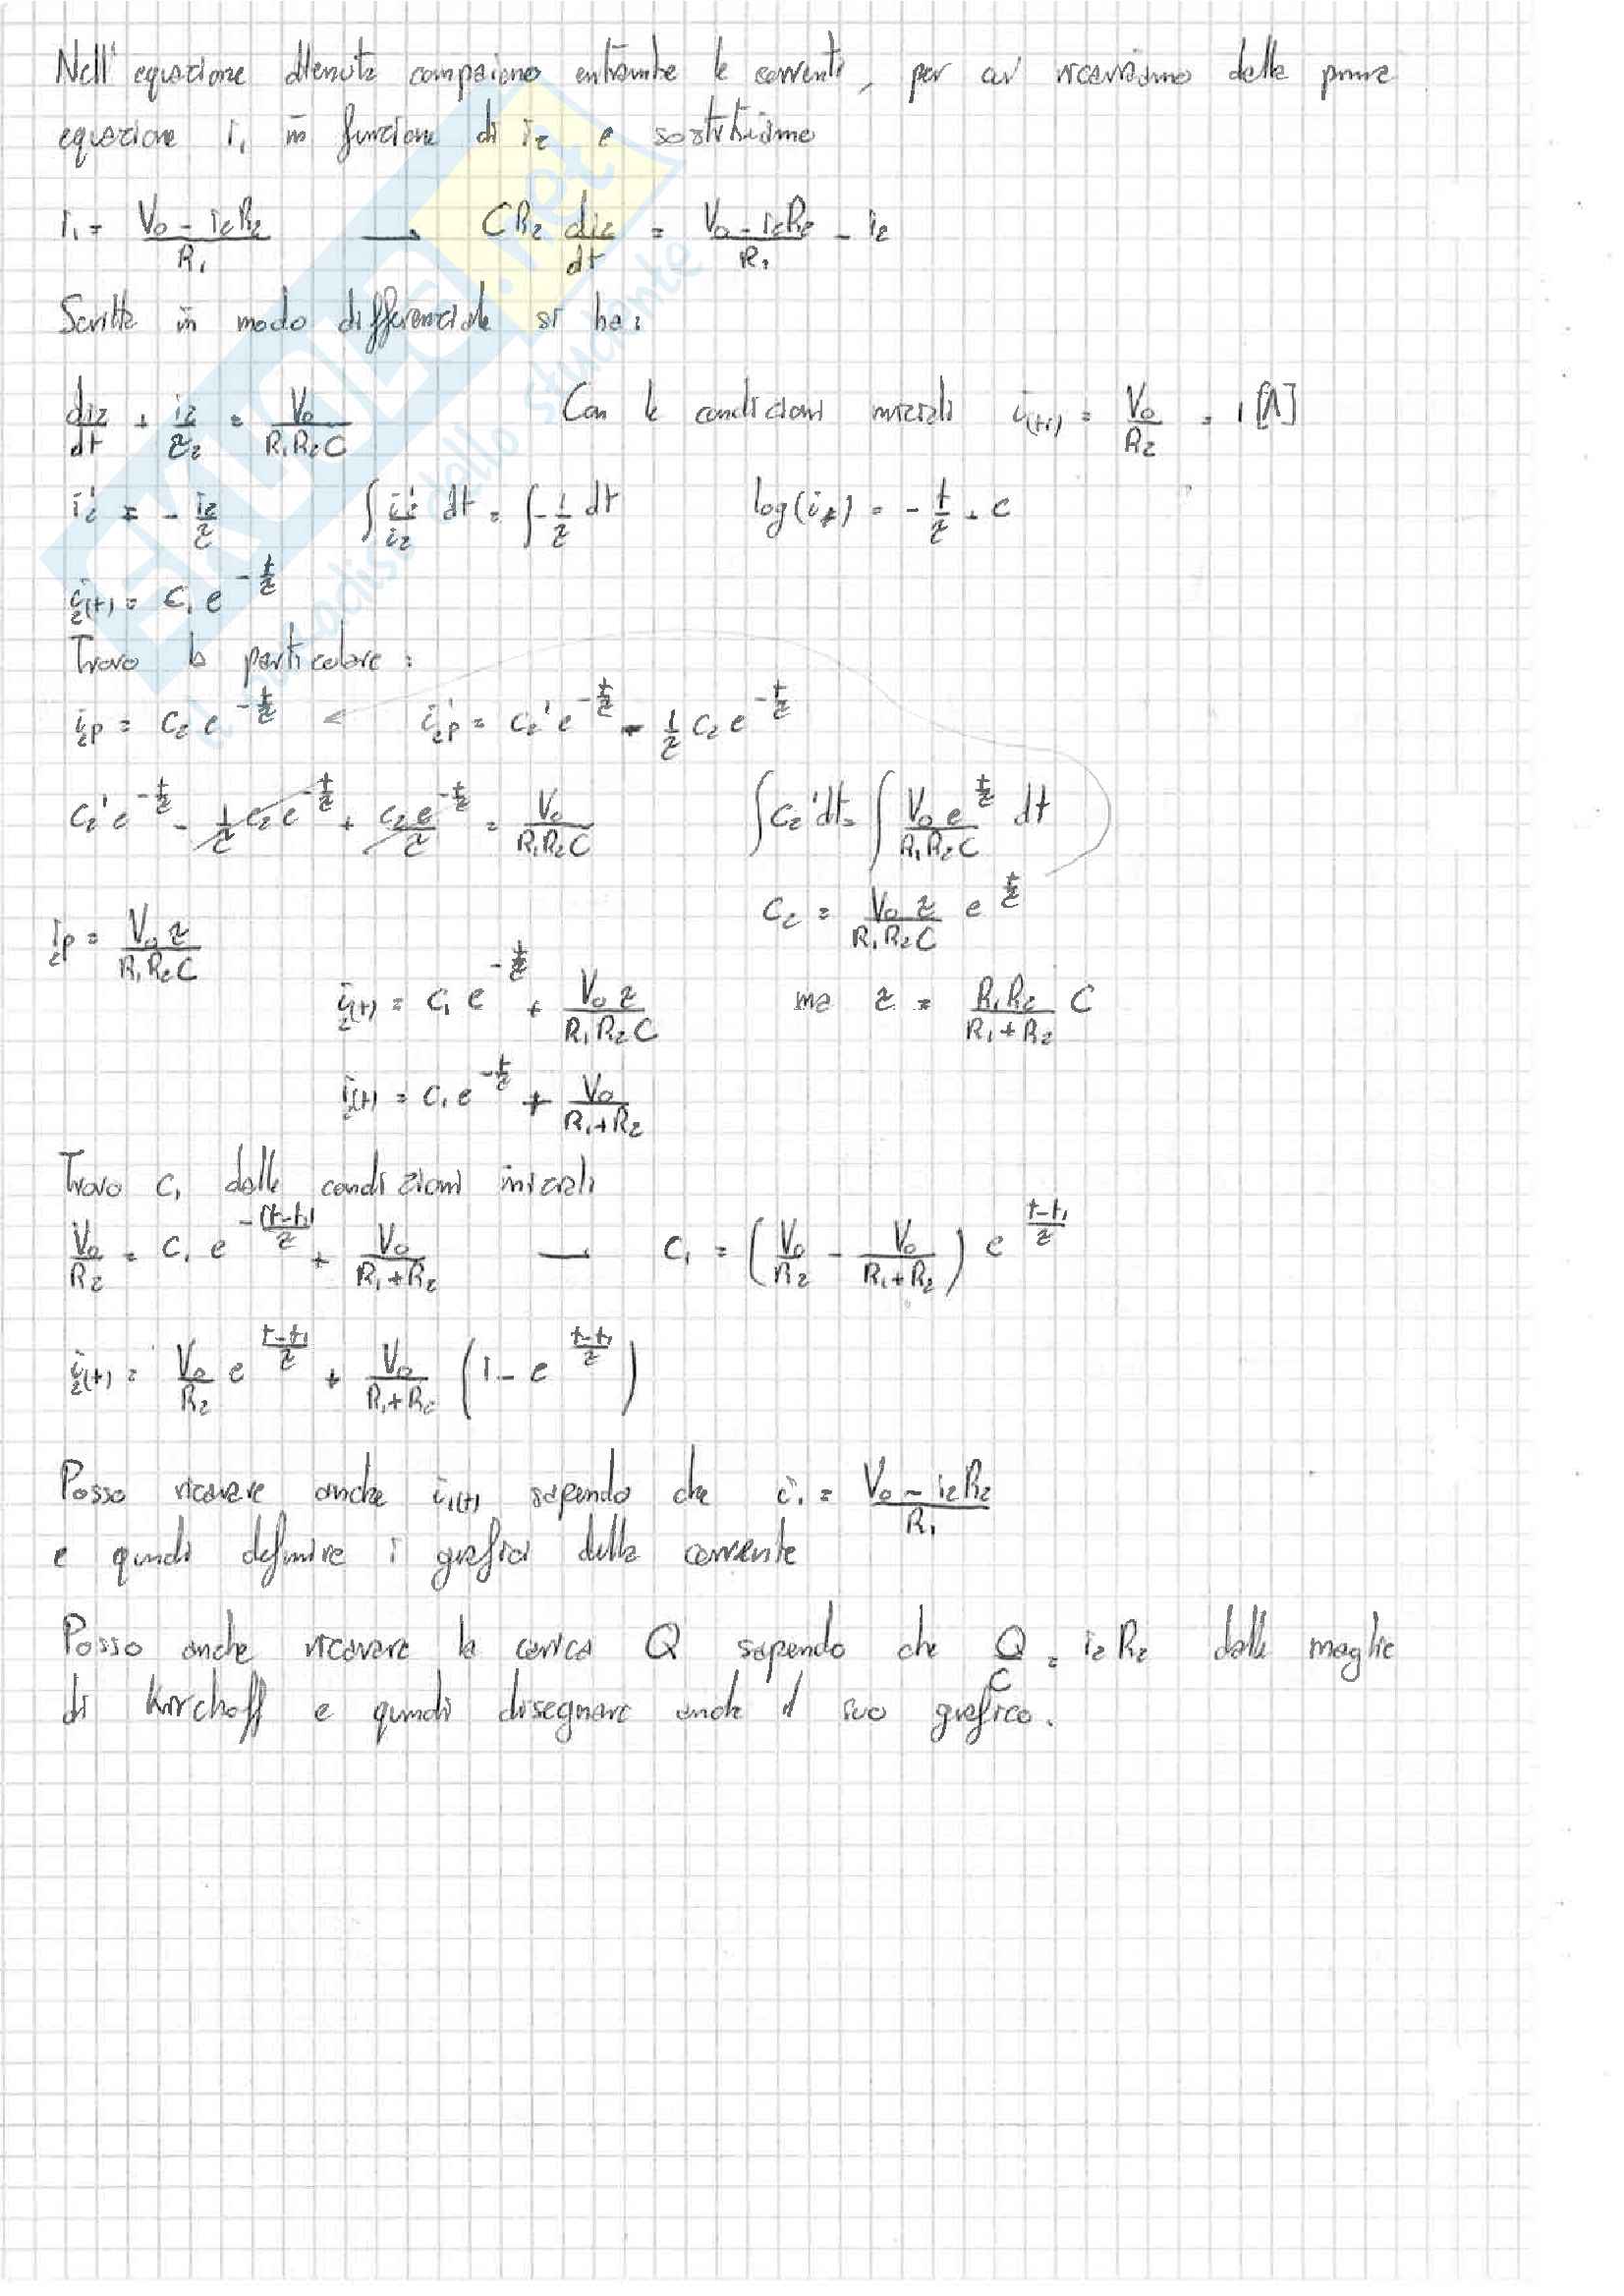 Nell'equazione ottenuta compaiono entrambe le correnti, per cui ricaviamo dalla prima
equazione i₁ in funzione di i₂ e sostituiamo
i₁ = (V₀ - i₂R₂)/R₁ → CR₂ di₂/dt = (V₀ - i₂R₂)/R₁ - i₂
Scritta in modo differenziale si ha:
di₂/dt + i₂/τ₂ = V₀/(R₁R₂C) Con le condizioni iniziali i(t₁) = V₀/R₂ = 1 [A]
i₂' = - i₂/τ ∫ i₂'/i₂ dt = ∫ -1/τ dt log(i₂) = - t/τ + c
i₂(t) = C₁ e^(-t/τ)
Trovo la particolare:
i₂p = C₂ e^(-t/τ) ← i₂p' = C₂' e^(-t/τ) - 1/τ C₂ e^(-t/τ)
C₂' e^(-t/τ) - 1/τ C₂ e^(-t/τ) + C₂ e^(-t/τ)/τ = V₀/(R₁R₂C) ∫ C₂' dt = ∫ V₀ e^(t/τ)/(R₁R₂C) dt
C₂ = V₀ τ/(R₁R₂C) e^(t/τ)
i₂p = V₀ τ/(R₁R₂C)
i₂(t) = C₁ e^(-t/τ) + V₀ τ/(R₁R₂C) ma τ = R₁R₂/(R₁+R₂) C
i₂(t) = C₁ e^(-t/τ) + V₀/(R₁+R₂)
Trovo C₁ dalle condizioni iniziali
V₀/R₂ = C₁ e^(-(t-t₁)/τ) + V₀/(R₁+R₂) → C₁ = (V₀/R₂ - V₀/(R₁+R₂)) e^((t-t₁)/τ)
i₂(t) = V₀/R₂ e^((t-t₁)/τ) + V₀/(R₁+R₂) (1 - e^((t-t₁)/τ))
Posso ricavare anche i₁(t) sapendo che i₁ = (V₀ - i₂R₂)/R₁
e quindi definire i grafici della corrente
Posso anche ricavare la carica Q sapendo che Q/C = i₂R₂ dalle maglie
di Kirchoff e quindi disegnare anche il suo grafico.
SKUOLA.net
il paradiso dello studente